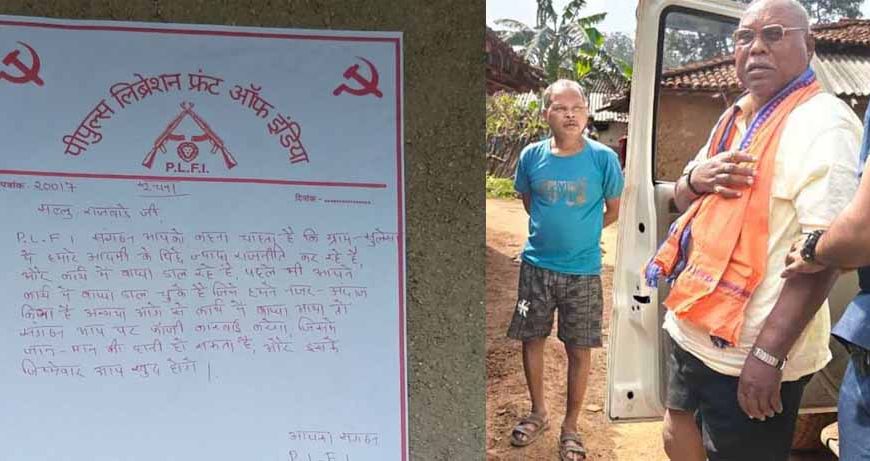 पीपुल्स लिब्रेशन फ्रंट ऑफ इंडिया
P.L.F.I.
पत्रांक- 20017
सूचना
दिनांक - ..............
जी,
P.L.F.I संगठन आपको कहना चाहता है कि ग्राम-
में हमारे आदमी के राजनीति कर रहे हैं,
और कार्य में बाधा डाल रहे हैं, पहले भी आपने
कार्य में बाधा डाल चुके हैं जिसे हमने नजर-अंदाज
किया है अन्यथा आगे से कार्य में बाधा आया तो
संगठन आप पर फौजी कारवाई करेगा, जिसमें
जान-माल की हानी हो सकता है, और इसके
जिम्मेवार आप खुद होंगे।
आपका संगठन
P.L.F.I